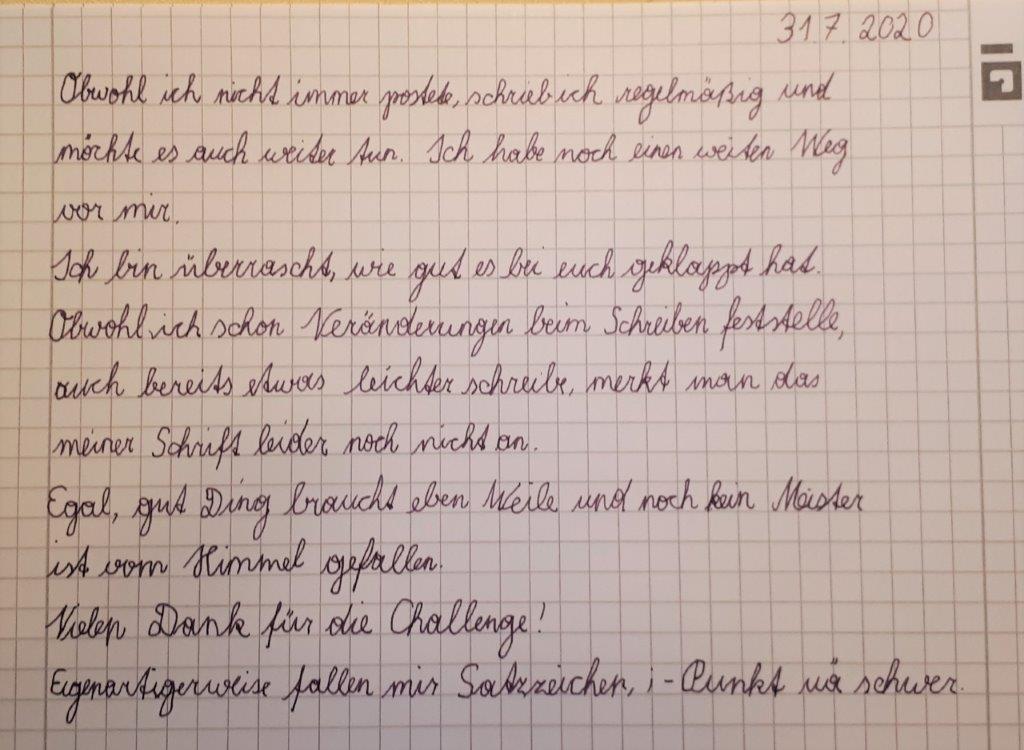 31.7.2020
Obwohl ich nicht immer postete, schrieb ich regelmäßig und
möchte es auch weiter tun. Ich habe noch einen weiten Weg
vor mir.
Ich bin überrascht, wie gut es bei euch geklappt hat.
Obwohl ich schon Veränderungen beim Schreiben feststelle,
auch bereits etwas leichter schreibe, merkt man das
meiner Schrift leider noch nicht an.
Egal, gut Ding braucht eben Weile und noch kein Meister
ist vom Himmel gefallen.
Vielen Dank für die Challenge!
Eigenartigerweise fallen mir Satzzeichen, i-Punkt uä schwer.